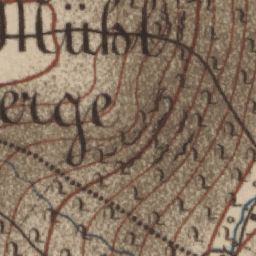 Mühlb
erge